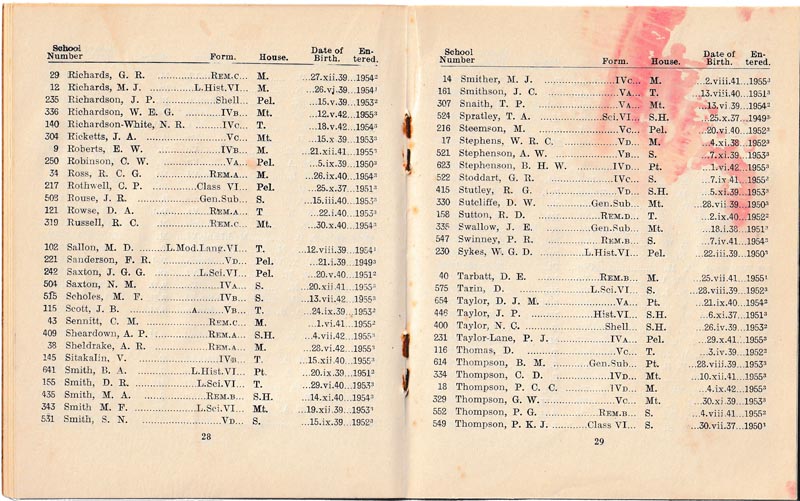 School Number Form. House. Date of Birth. Entered.
29 Richards, G. R. ...............Rem.C... M. ...27.xii.39...1954²
12 Richards, M. J. ..........L.Hist.VI... M. ...26.vj.39...1954¹
235 Richardson, J. P. ...............Shell... Pel. ...15.v.39...1953²
336 Richardson, W. E. G. ............IVB... Mt. ...12.v.42...1955³
140 Richardson-White, N. R. .........IVC... T. ...18.v.42...1954³
304 Ricketts, J. A. ...............VC... Mt. ...15.x 39...1953³
9 Roberts, E. W. ...............IVB... M. ...21.xii.41...1955³
250 Robinson, C. W. ...............VA... Pel. ...5.ix.39...1950³
34 Ross, R. C. G. ...............Rem.A... M. ...26.ix.40...1954³
217 Rothwell, C. P. ............Class VI... Pel. ...25.x.37...1951³
503 Rouse, J. R. ...............Gen.Sub... S. ...15.iii.40...1953³
121 Rowse, D. A. ...............Rem.A... T ...22.i.40...1953³
319 Russell, R. C. ...............Rem.C... Mt. ...30.x.40...1954³
102 Sallon, M. D. ......L.Mod.Lang.VI... T. ...12.viii.39...1954¹
221 Sanderson, F. R. ...............VD... Pel. ...21.i.39...1949³
242 Saxton, J. G. G. ............L.Sci.VI... Pel. ...20.v.40...1951²
504 Saxton, N. M. ...............IVA... S. ...20.xii.41...1955³
515 Scholes, M. F. ...............IVB... S. ...13.vii.42...1955³
115 Scott, J. B. .........A......VB... T. ...24.ix.39...1953³
43 Sennitt, C. M. ...............Rem.C... M. ...1.vi.41...1955²
409 Sheardown, A. P. ............Rem.A... S.H. ...4.vii.42...1955³
38 Sheldrake, A. R. ............Rem.A... M. ...28.vi.42...1955³
145 Sitakalin, V. ...............IVB... T. ...15.xii.40...1955²
641 Smith, B. A. ............L.Hist.VI... Pt. ...20.ix.39...1951²
155 Smith, D. R. ............L.Sci.VI... T. ...29.vi.40...1953³
435 Smith, M. A. ...............Rem.B... S.H. ...14.xi.40...1954³
343 Smith M. F. ............L.Sci.VI... Mt. ...19.xii.39...1953¹
531 Smith, S. N. ...............VD... S. ...15.ix.39...1952³
28
School Number Form. House. Date of Birth. Entered.
14 Smither, M. J. ...............IVC... M. ...2.viii.41...1955³
161 Smithson, J. C. ...............VA... T. ...13.viii.40...1951³
307 Snaith, T. P. ...............VA... Mt. ...13.vi.39...1954²
524 Spratley, T. A. ............Sci.VI... S.H. ...25.x.37...1949³
216 Steemson, M. ...............VC... Pel. ...20.vi.40...1952³
17 Stephens, W. R. C. ............VD... M. ...4.xi.38...1952³
521 Stephenson, A. W. ............VB... S. ...7.xi.39...1953³
623 Stephenson, B. H. W. .........IVD... Pt. ...1.vi.42...1955³
522 Stoddart, G. R. ...............IVC... S. ...7.ix.41...1955³
415 Stutley, R. G. ...............VD... S.H. ...5.xi.39...1953³
330 Sutcliffe, D. W. ............Gen.Sub... Mt. ...28.vii.39...1950³
158 Sutton, R. D. ...............Rem.D... T. ...2.ix.40...1952³
335 Swallow, J. E. ............Gen.Sub... Mt. ...18.i.38...1951³
547 Swinney, P. R. ...............Rem.B... S. ...7.iv.41...1954³
230 Sykes, W. G. D. ............L.Hist.VI... Pel. ...22.iii.39...1950³
40 Tarbatt, D. E. ...............Rem.B... M. ...25.vii.41...1955¹
575 Tarin, D. ...............L.Sci.VI... S. ...28.viii.39...1952³
654 Taylor, D. J. M. ...............VA... Pt. ...21.ix.40...1954²
446 Taylor, J. P. ............Hist.VI... S.H. ...6.xi.37...1951³
400 Taylor, N. C. ...............Shell... S.H. ...26.iv.39...1953²
231 Taylor-Lane, P. J. ............IVA... Pel. ...29.x.41...1955³
116 Thomas, D. ...............VC... T. ...3.iv.39...1952³
614 Thompson, B. M. .........Gen.Sub... Pt. ...28.viii.39...1953³
334 Thompson, C. D. ............IVD... Mt. ...10.xii.41...1955³
18 Thompson, P. C. C. ............IVD... M. ...4.ix.42...1955³
329 Thompson, G. W. ............VC... Mt. ...30.xi.39...1953³
552 Thompson, P. G. ............Rem.B... S. ...4.viii.41...1955³
549 Thompson, P. K. J. ......Class VI... S. ...30.vii.37...1950¹
29